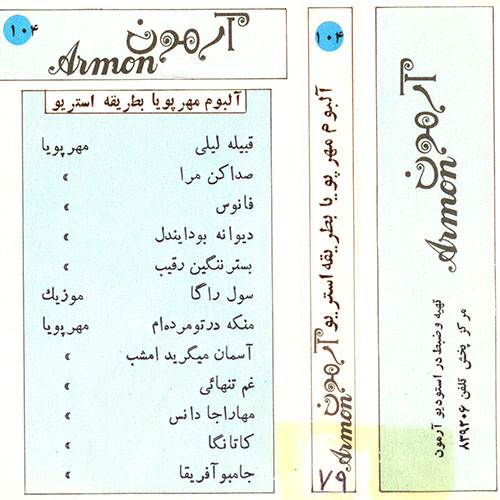 ۱۰۴
آرمون
Armon
آلبوم مهرپویا بطریقه استریو
قبیله لیلی مهرپویا
صداکن مرا »
فانوس »
دیوانه بودایندل »
بستر ننگین رقیب »
سول راگا موزیك
منکه درتومرده‌ام مهرپویا
آسمان میگرید امشب »
غم تنهائی »
مهاراجا دانس »
کاتانگا »
جامبوآفریقا »
۱۰۴
آلبوم مهرپویا بطریقه استریو
آرمون
Armon
۷۹
آرمون
Armon
تهیه وضبط در استودیو آرمون
مرکز پخش تلفن ۸۳۹۲۰۶